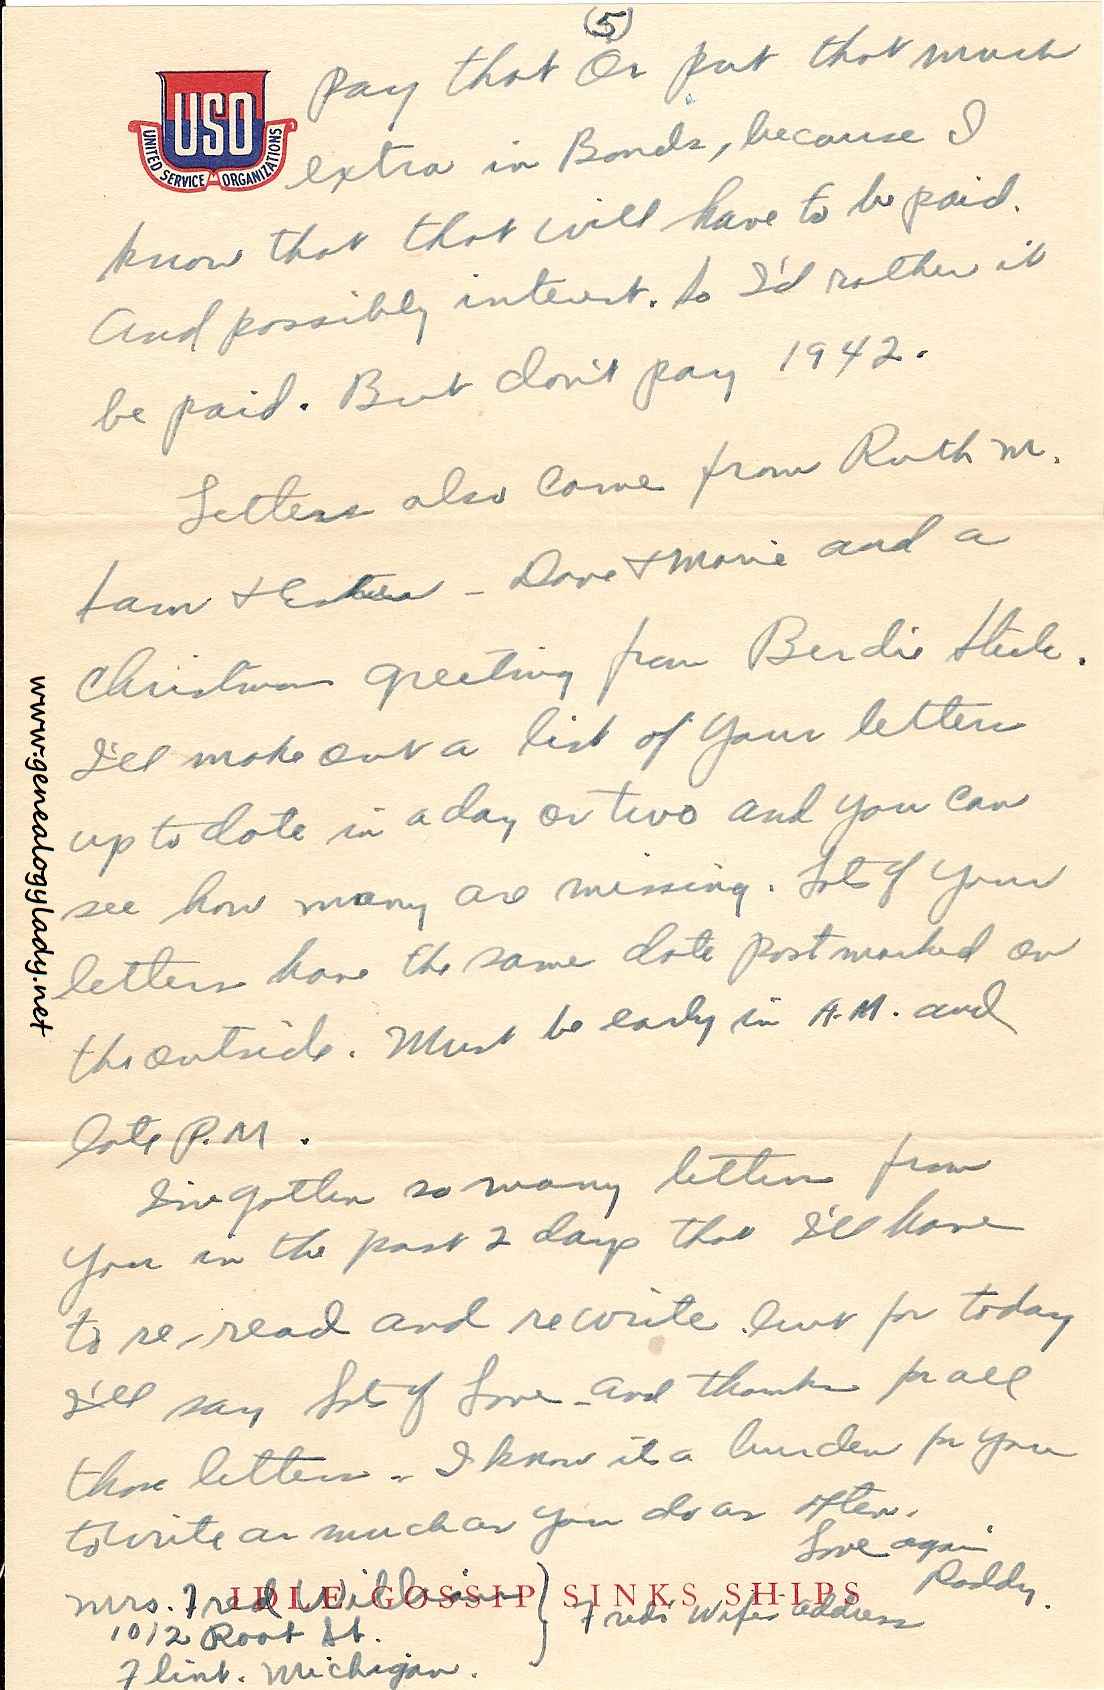 (5)
USO
UNITED SERVICE ORGANIZATIONS
pay that Or put that much
extra in Bonds, because I
know that that will have to be paid.
And possibly interest. So I'd rather it
be paid. But don't pay 1942.
Letters also came from Ruth M.
Sam + Esther - Dave + Marie and a
Christmas greeting from Berdie
I'll make out a list of your letters
up to date in a day or two and you can
see how many are missing. Lots of your
letters have the same date postmarked on
the outside. Must be early in A.M. and
late P.M.
I've gotten so many letters from
you in the past 2 days that I'll have
to re-read and rewrite but for today
I'll say Lots of Love - and thanks for all
those letters - I know it's a burden for you
to write as much as you do as often.
Love again
Roddy.
IDLE GOSSIP SINKS SHIPS
Mrs. Fred Williams } Freds Wifes address
1012 Root St.
Flint. Michigan.
www.genealogylady.net